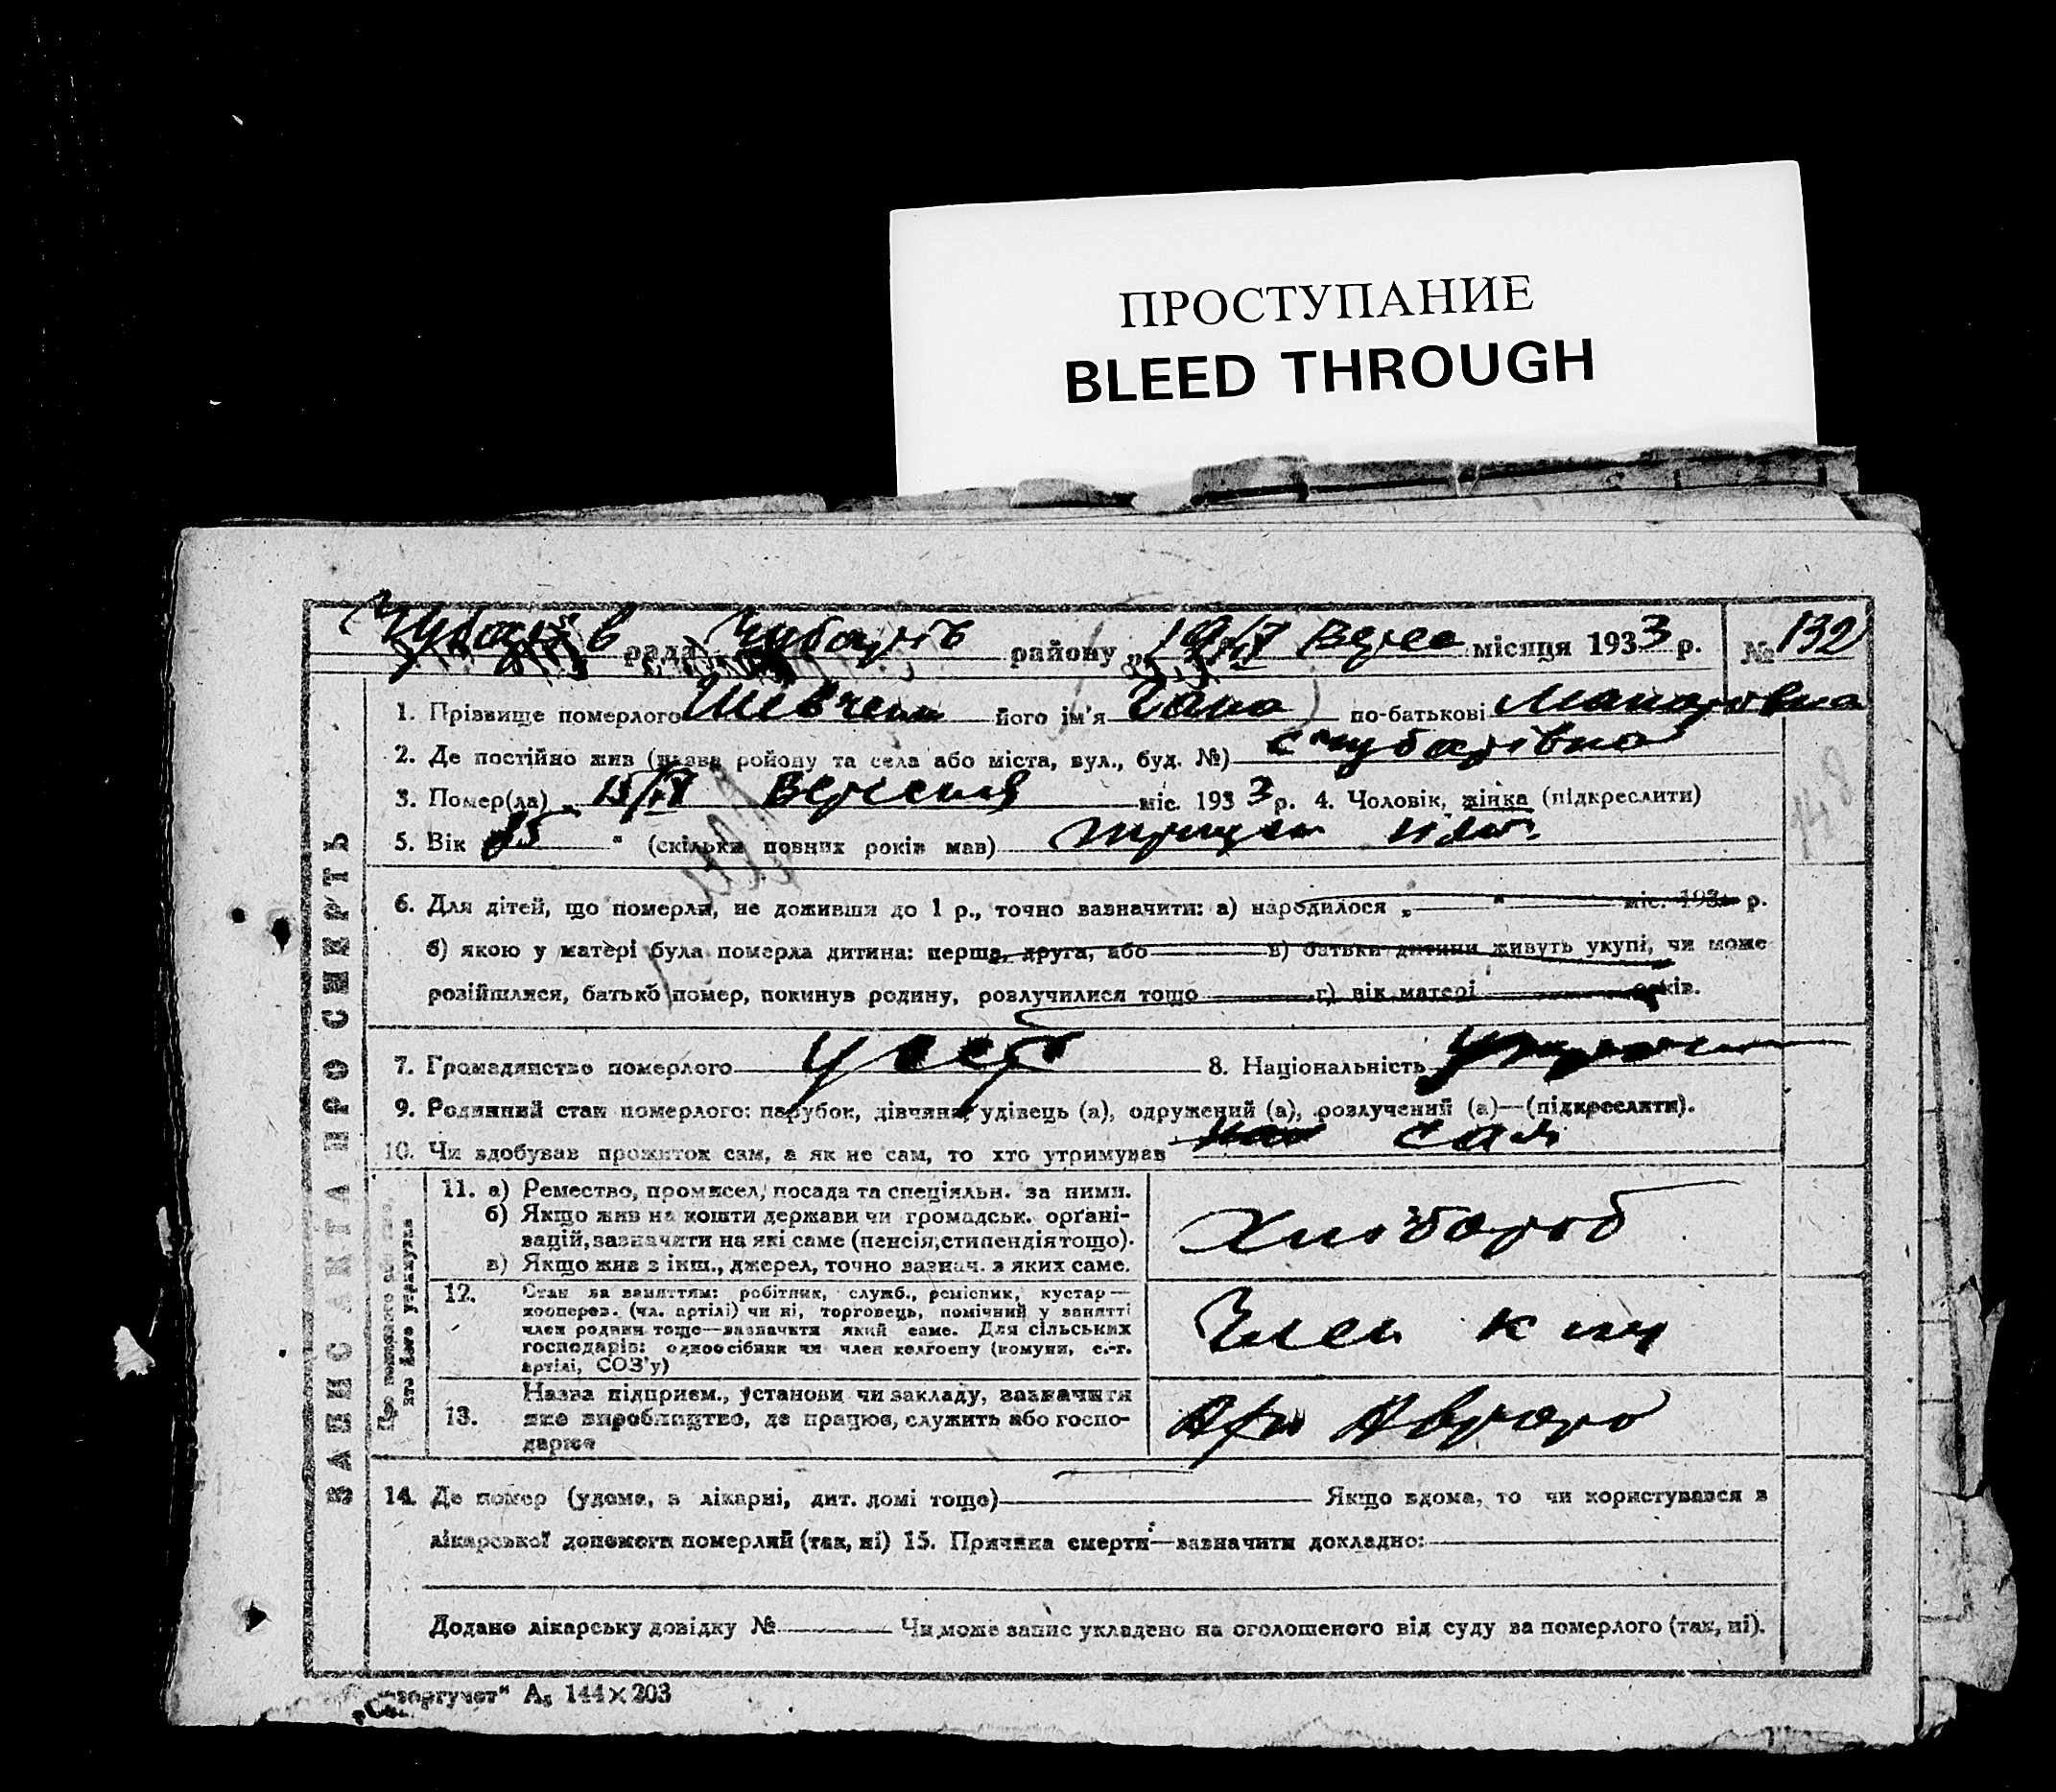 ПРОСТУПАНИЕ
BLEED THROUGH
рада району Верес місяця 1933 р. № 132
ЗАПИС АКТА ПРО СМЕРТЬ
1. Прізвище померлого Шевченко його ім'я Гана по-батькові Макаровна
2. Де постійно жив (назва району та села або міста, вул., буд. №)
3. Помер(ла) „ 15/IX Вересня міс. 1933 р. 4. Чоловік, жінка (підкреслити)
5. Вік 35 " (скільки повних років мав) пять
6. Для дітей, що померли, не доживши до 1 р., точно зазначити: а) народилося „ " міс. 193 р.
б) якою у матері була померла дитина: перша, друга, або в) батьки дитини живуть укупі, чи може
розійшлися, батько помер, покинув родину, розлучилися тощо г) вік матері років.
7. Громадянство померлого УССР 8. Національність
9. Родинний стан померлого: парубок, дівчина, удівець (а), одружений (а), розлучений (а)—(підкреслити).
10. Чи здобував прожиток сам, а як не сам, то хто утримував сам
11. а) Ремество, промисел, посада та спеціяльн. за ними.
б) Якщо жив на кошти держави чи громадськ. орґані-
зацій, зазначити на які саме (пенсія, стипендія тощо).
в) Якщо жив з інш., джерел, точно зазнач. з яких саме.
Хлібороб
12. Стан за заняттям: робітник, служб., ремісник, кустар—
кооперов. (чл. артілі) чи ні, торговець, помічний у занятті
член родини тощо—зазначити який саме. Для сільських
господарів: одноосібник чи член колгоспу (комуни, с.-г.
артілі, СОЗ'у)
Член
13. Назва підприєм., установи чи закладу, зазначити
яке виробництво, де працює, служить або госпо-
дарює
14. Де помер (удома, в лікарні, дит. домі тощо) Якщо вдома, то чи користувався з
лікарської допомоги померлий (так, ні) 15. Причина смерти—зазначити докладно:
Додано лікарську довідку № Чи може запис укладено на оголошеного від суду за померлого (так, ні).
А₅ 144×203